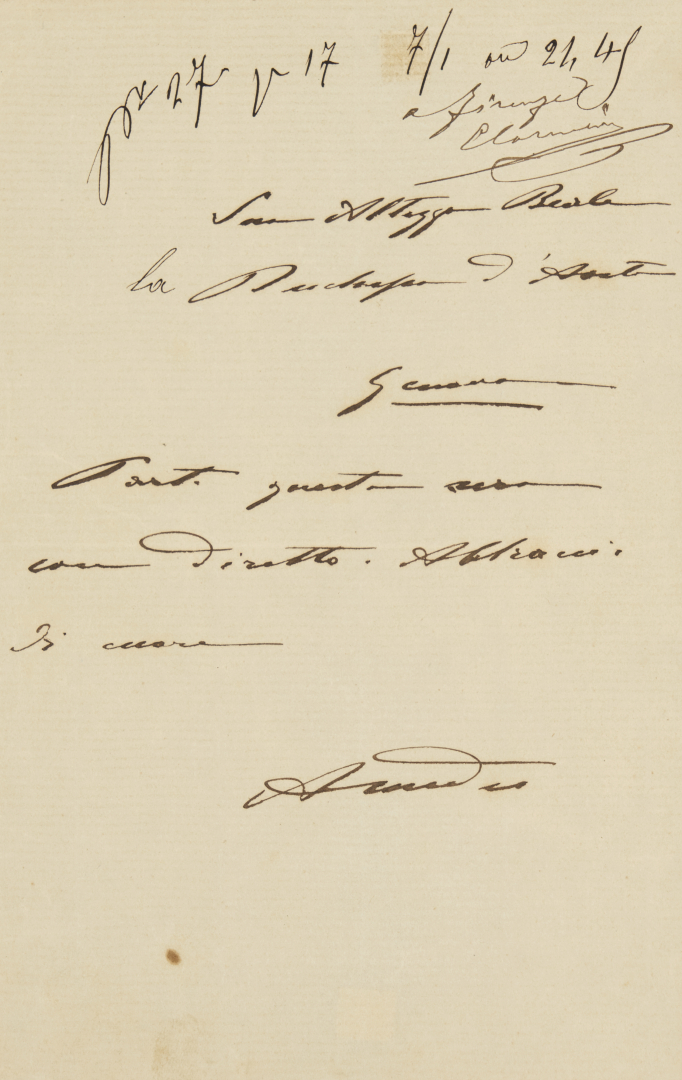 27 p 17 7/1 ore 21,45
a Firenze
Sua Altezza Reale
la Duchessa d'Aosta
Genova
Parto questa sera
con diretto. Abbracci.
di cuore
Amedeo